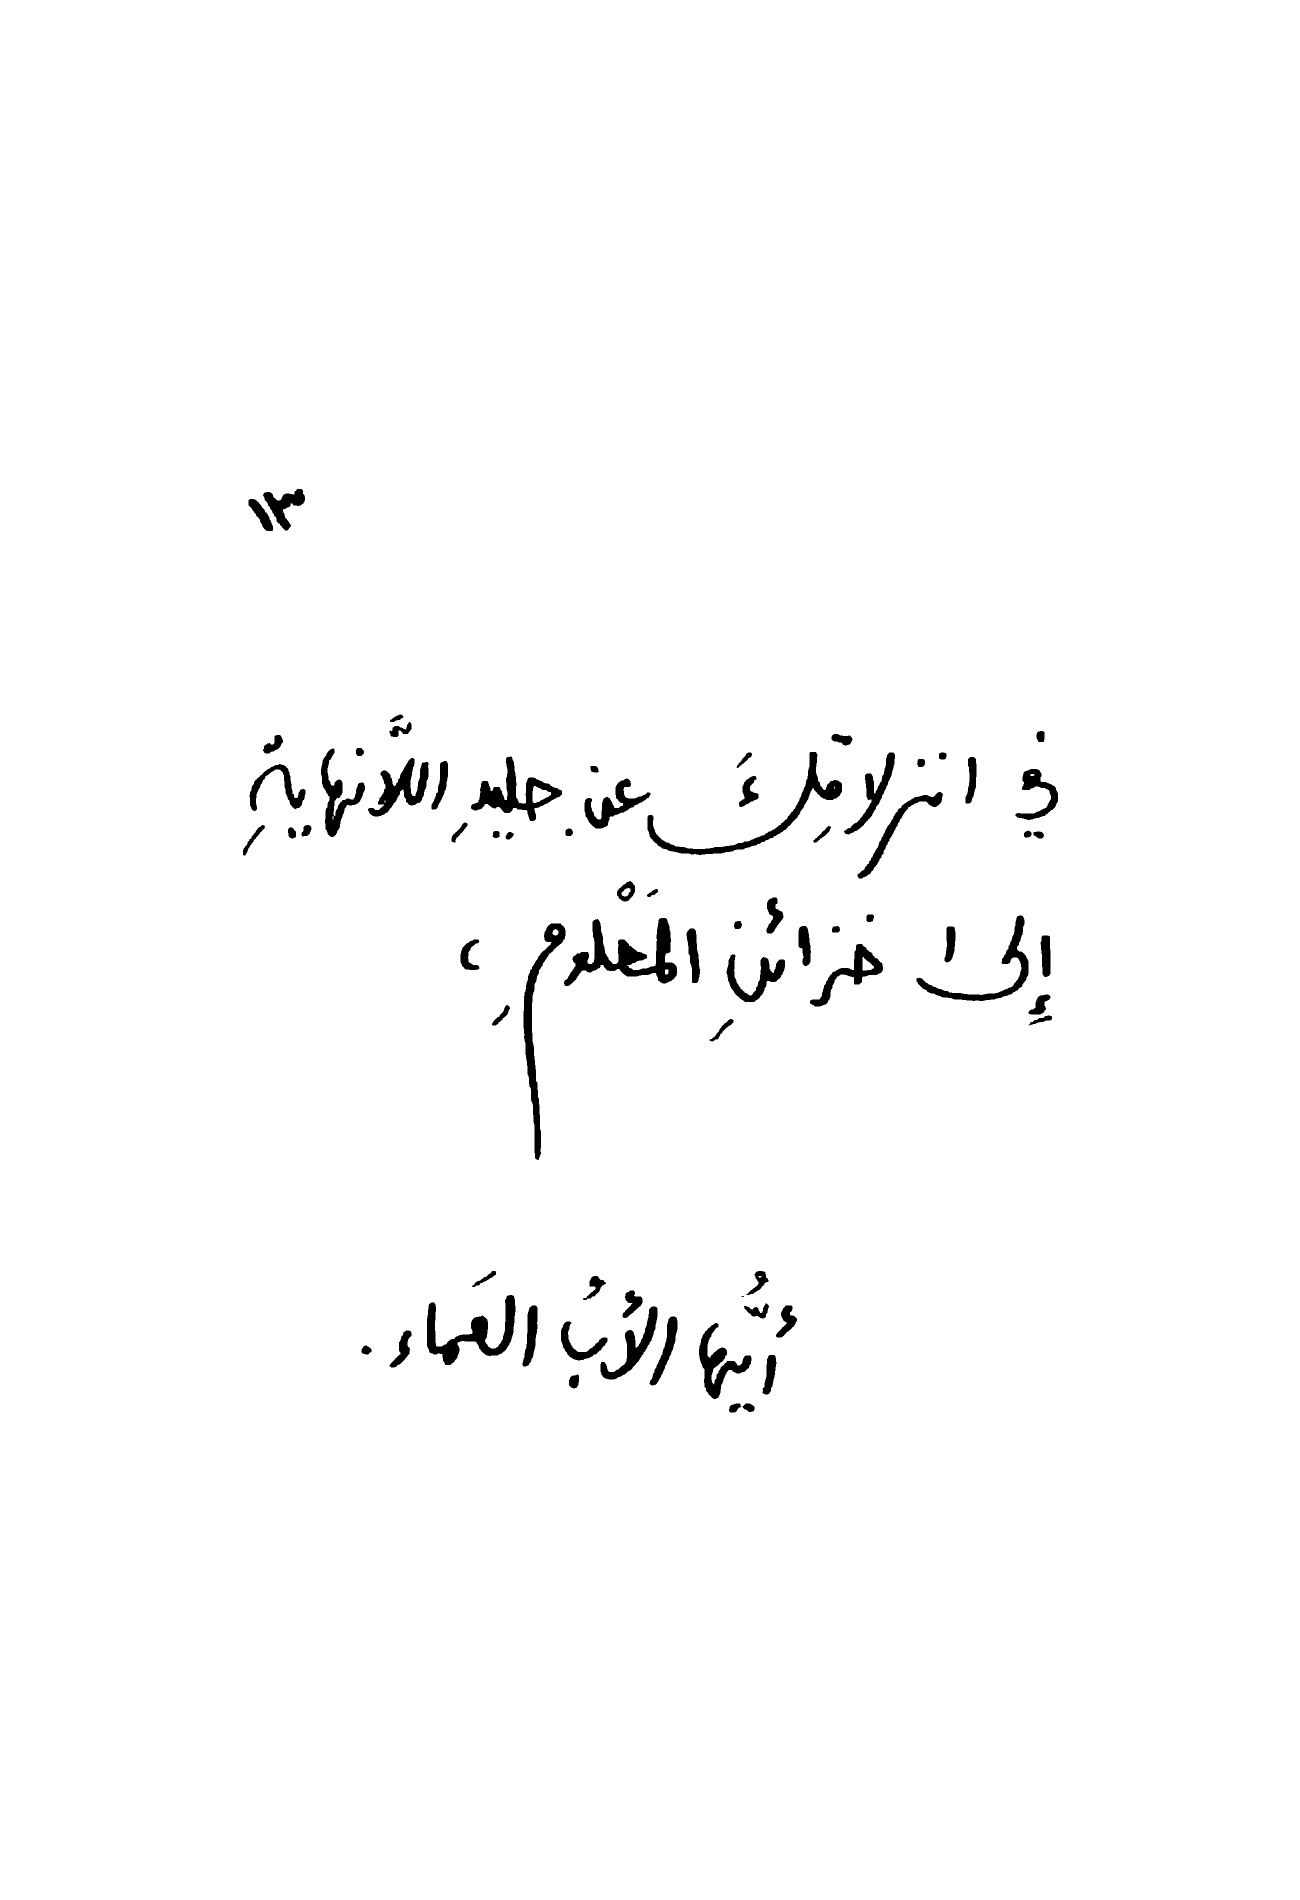 ١٣
في انزلاقِكَ عن جليدِ اللَّانهايةِ
إِلى خزائنِ المَعْلومِ ،
أيُّها الأبُ العَماء .